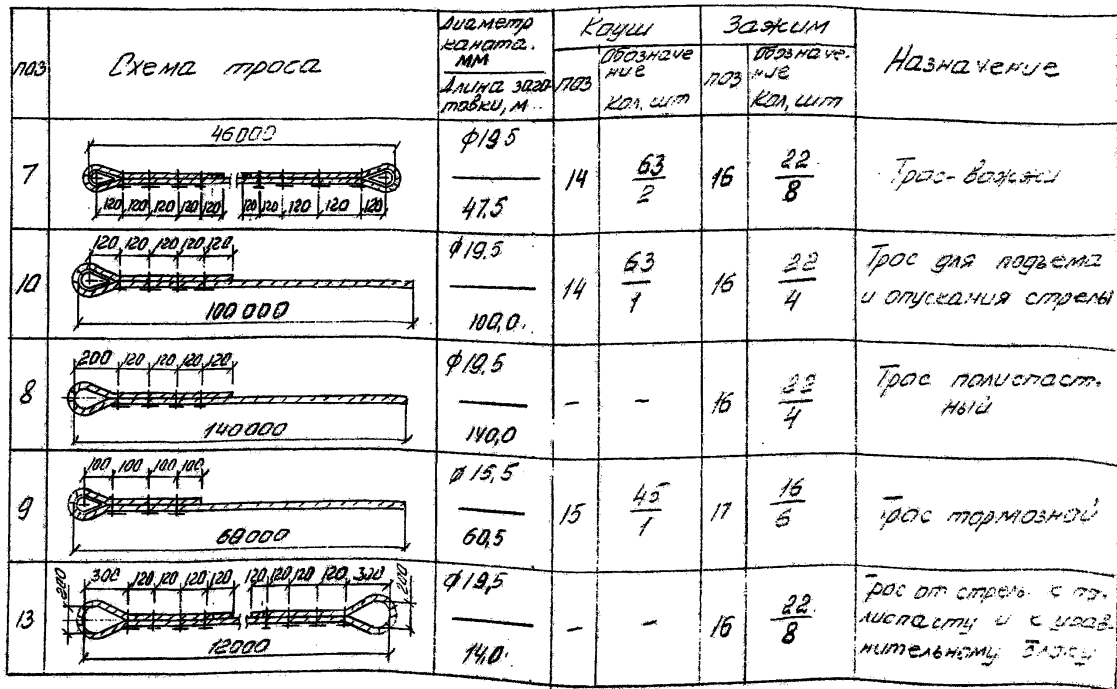 поз
Схема троса
Диаметр
каната.
мм
Длина заго-
товки, м.
Коуш
поз
Обозначе
ние
Кол, шт
Зажим
поз
Обозначе-
ние
Кол, шт
Назначение
7
46000
120 120 120 120 120 120 120 120 120 120
ф19.5
47.5
14
63
2
16
22
8
Трос-вожжи
10
120 120 120 120 120
100 000
ф19.5
100,0.
14
63
1
16
22
4
Трос для подъема
и опускания стрелы
8
200 120 120 120 120
140000
ф19,5
140,0
-
-
16
22
4
Трос полиспаст-
ный
9
100 100 100 100
60000
ф15,5
60,5
15
45
1
17
16
Трос тормозной
13
200 300 120 120 120 120 120 120 120 120 300 200
12000
ф19,5
14.0.
-
-
16
22
8
Трос от стрелы к по-
лиспасту и к урав-
нительному блоку